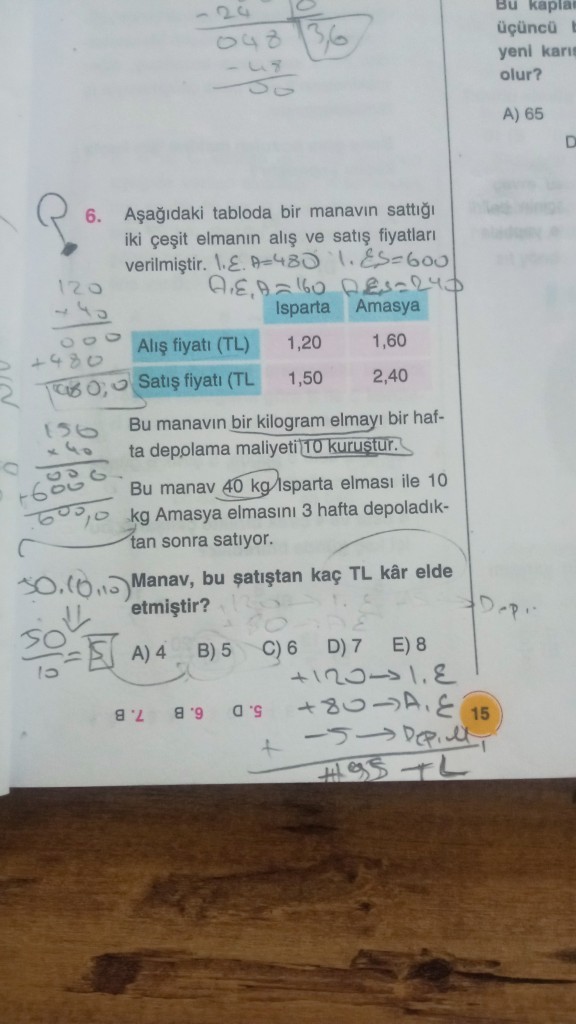 - 24
048 3,6
- 48
00
Bu kaplar
üçüncü
yeni karış
olur?
A) 65
D
6. Aşağıdaki tabloda bir manavın sattığı
iki çeşit elmanın alış ve satış fiyatları
verilmiştir. I.E.A=480 I.ES=600
A.E.A=160 A.E.S=240
Isparta Amasya
Alış fiyatı (TL) 1,20 1,60
Satış fiyatı (TL 1,50 2,40
120
x 40
000
+480
480,0
150
x 40
000
+600
600,0
Bu manavın bir kilogram elmayı bir haf-
ta depolama maliyeti 10 kuruştur.
Bu manav 40 kg Isparta elması ile 10
kg Amasya elmasını 3 hafta depoladık-
tan sonra satıyor.
Manav, bu satıştan kaç TL kâr elde
etmiştir?
50.(0,10)
50/10 = 5
A) 4 B) 5 C) 6 D) 7 E) 8
+120→I.E
+80→A.E
-5→Dep.M
+195 TL
5. D 6. B 7. B
15